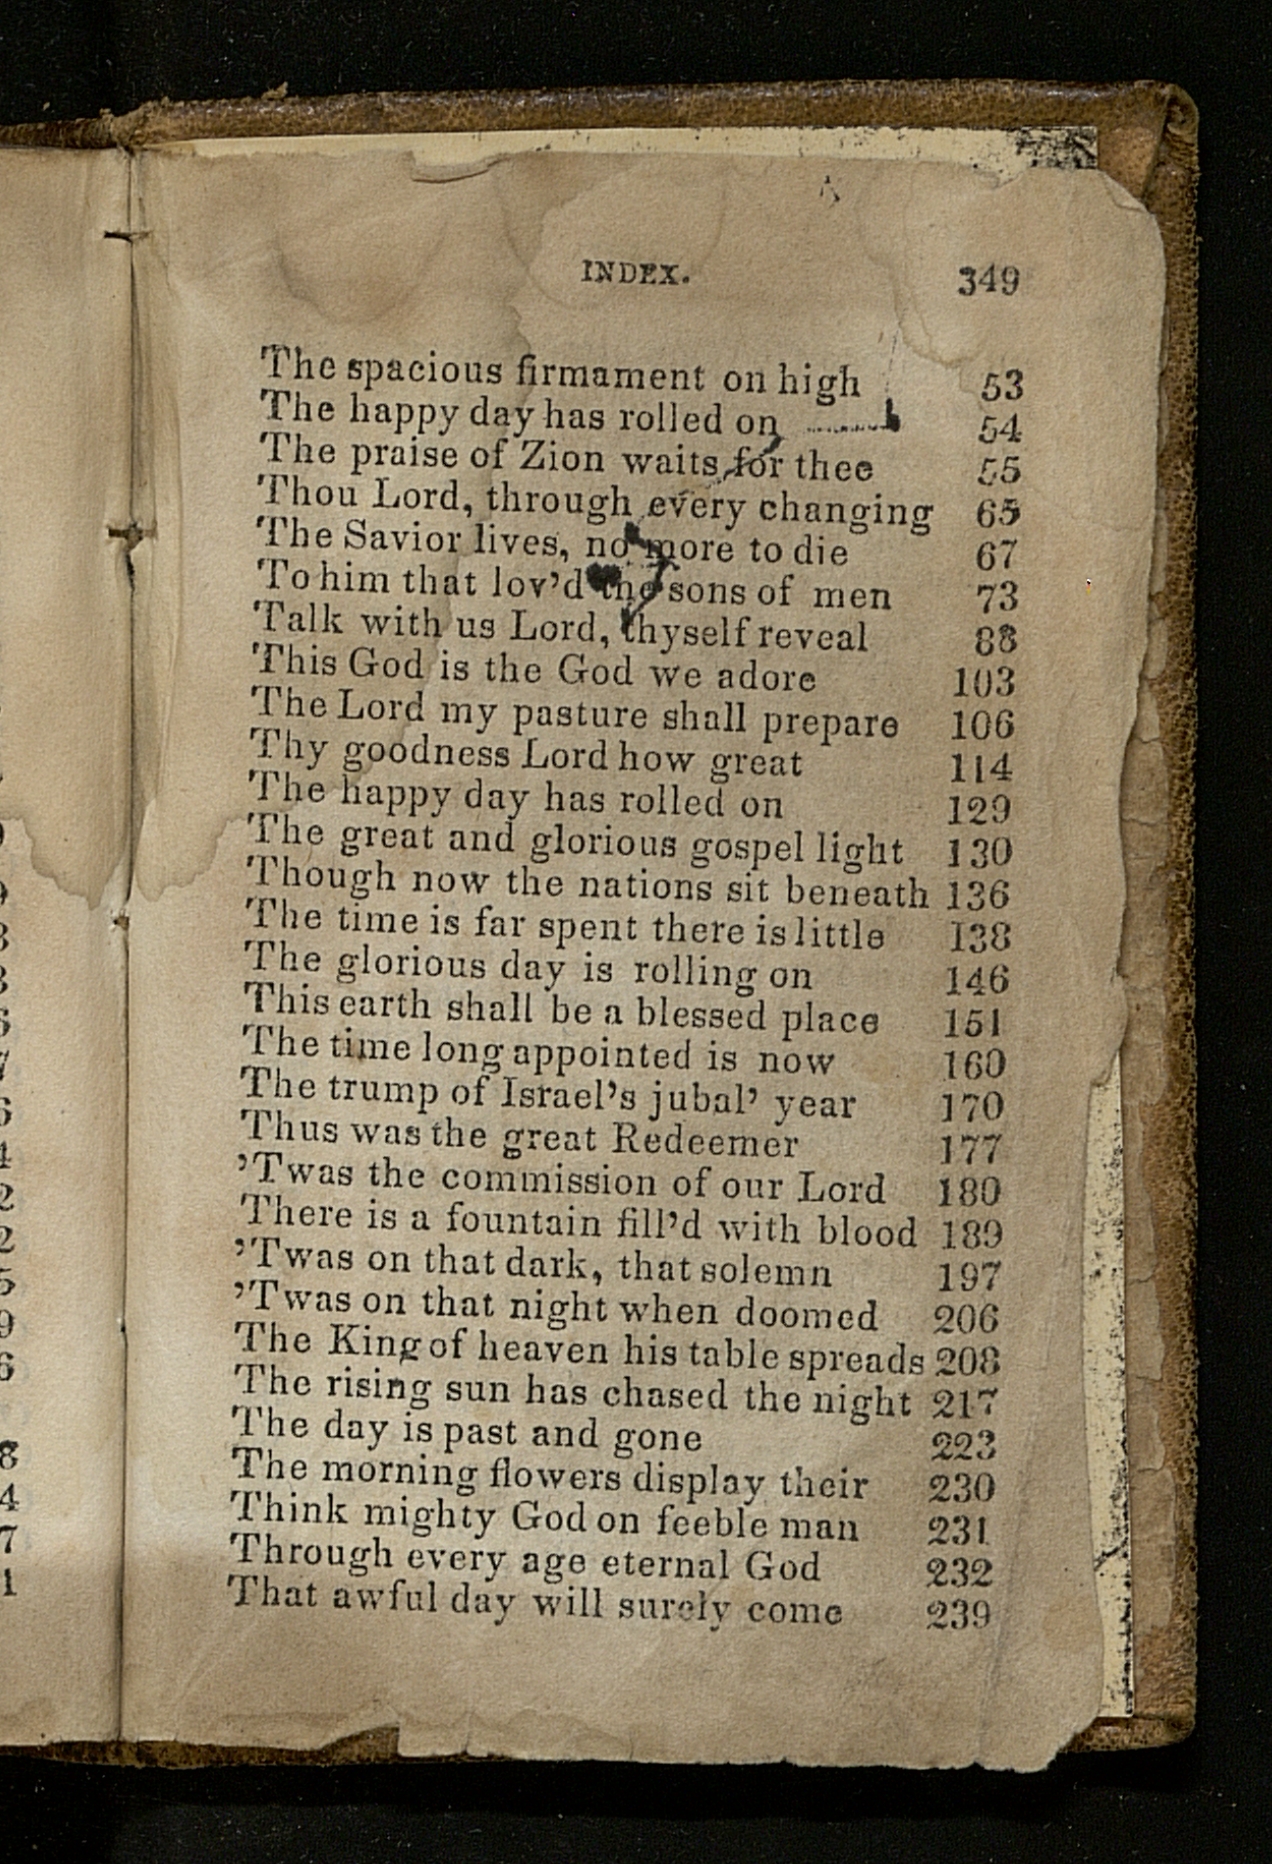 INDEX. 349
The spacious firmament on high 53
The happy day has rolled on 54
The praise of Zion waits for thee 55
Thou Lord, through every changing 65
The Savior lives, no more to die 67
To him that lov'd the sons of men 73
Talk with us Lord, thyself reveal 88
This God is the God we adore 103
The Lord my pasture shall prepare 106
Thy goodness Lord how great 114
The happy day has rolled on 129
The great and glorious gospel light 130
Though now the nations sit beneath 136
The time is far spent there is little 138
The glorious day is rolling on 146
This earth shall be a blessed place 151
The time long appointed is now 160
The trump of Israel's jubal' year 170
Thus was the great Redeemer 177
'Twas the commission of our Lord 180
There is a fountain fill'd with blood 189
'Twas on that dark, that solemn 197
'Twas on that night when doomed 206
The King of heaven his table spreads 208
The rising sun has chased the night 217
The day is past and gone 223
The morning flowers display their 230
Think mighty God on feeble man 231
Through every age eternal God 232
That awful day will surely come 239